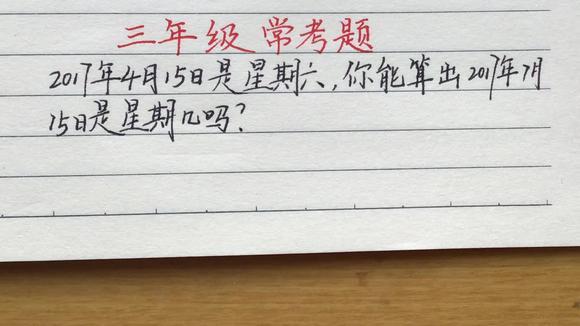 三年级常考题
2017年4月15日是星期六,你能算出2017年7月
15日是星期几吗?